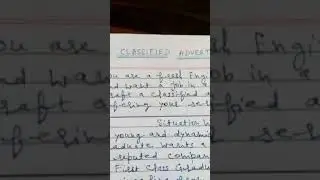 CLASSIFIED ADVERT
ou are a fresh Engi
nd want a job in a
raft a classified a
offering your se
Situation W
young and dynami
aduate wants a
reputed compan
First Class Gradu